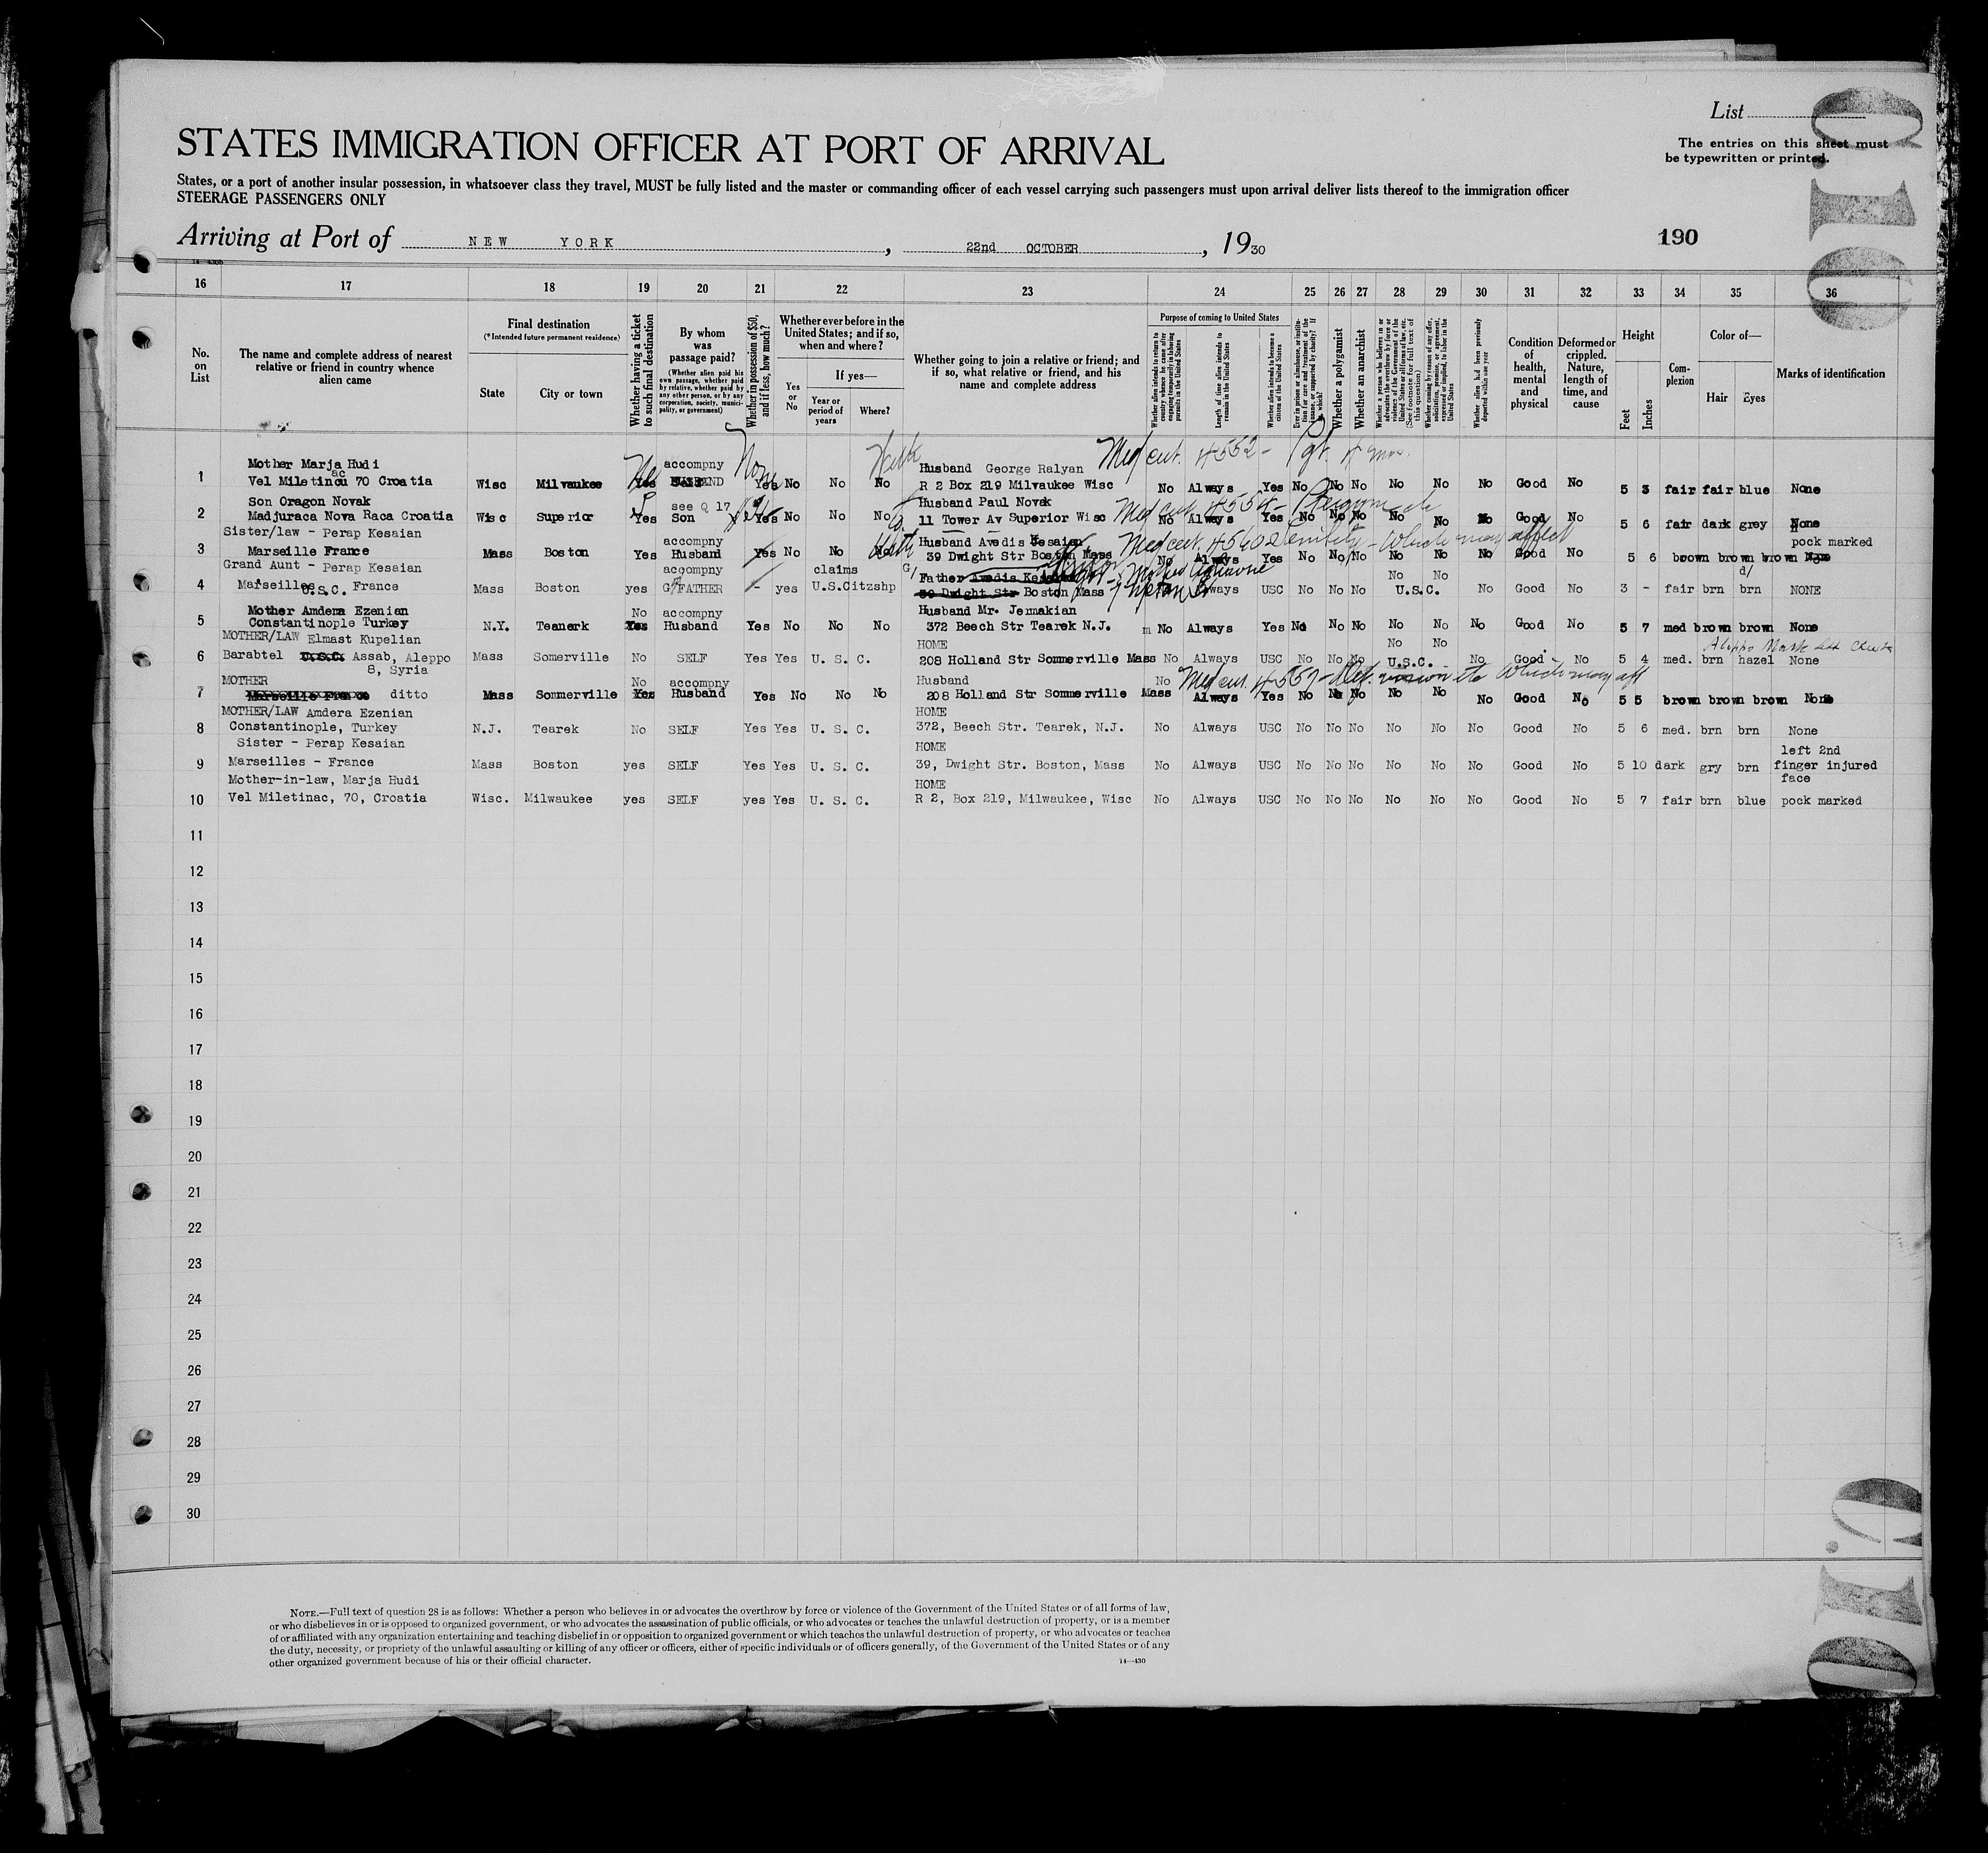 List
The entries on this sheet must
be typewritten or printed.
STATES IMMIGRATION OFFICER AT PORT OF ARRIVAL
States, or a port of another insular possession, in whatsoever class they travel, MUST be fully listed and the master or commanding officer of each vessel carrying such passengers must upon arrival deliver lists thereof to the immigration officer
STEERAGE PASSENGERS ONLY
Arriving at Port of NEW YORK, 22nd OCTOBER, 1930
190
0110
16 17 18 19 20 21 22 23 24 25 26 27 28 29 30 31 32 33 34 35 36
No. on List
The name and complete address of nearest relative or friend in country whence alien came
Final destination
(*Intended future permanent residence)
State
City or town
Whether having a ticket to such final destination
By whom was passage paid?
(Whether alien paid his own passage, whether paid by relative, whether paid by any other person, or by any corporation, society, municipality, or government)
Whether in possession of $50, and if less, how much?
Whether ever before in the United States; and if so, when and where?
Yes or No
If yes—
Year or period of years
Where?
Whether going to join a relative or friend; and if so, what relative or friend, and his name and complete address
Purpose of coming to United States
Whether alien intends to return to country whence he came after engaging temporarily in laboring pursuits in the United States
Length of time alien intends to remain in the United States
Whether alien intends to become a citizen of the United States
Ever in prison or almshouse, or institution for care and treatment of the insane, or supported by charity? If so, which?
Whether a polygamist
Whether an anarchist
Whether a person who believes in or advocates the overthrow by force or violence of the Government of the United States or all forms of law, etc. (See footnote for full text of this question)
Whether coming by reason of any offer, solicitation, promise, or agreement, expressed or implied, to labor in the United States
Whether alien had been previously deported within one year
Condition of health, mental and physical
Deformed or crippled. Nature, length of time, and cause
Height
Feet
Inches
Complexion
Color of—
Hair
Eyes
Marks of identification
Mother Marja Hudi accompny Husband George Ralyan Med cert. 4552 -
1 Vel Miletinac 70 Croatia Wisc Milwaukee Yes HUSBAND Yes No No No R 2 Box 219 Milwaukee Wisc No Always Yes No No No No No No Good No 5 3 fair fair blue None
Son Oragon Novak see Q 17 Husband Paul Novak Med cert 4554 -
2 Madjuraca Nova Raca Croatia Wisc Superior Yes Son Yes No No No 11 Tower Av Superior Wisc No Always Yes No No No No No No Good No 5 6 fair dark grey None
Sister/law - Perap Kesaian accompny Husband Avedis Kesaian Med cert. 4540 Senility - Which may affect pock marked
3 Marseille France Mass Boston Yes Husband Yes No No No 39 Dwight Str Boston Mass No Always Yes No No No No No No Good No 5 6 brown brown brown None
Grand Aunt - Perap Kesaian accompny claims Father Avedis Mother No No
4 Marseilles U.S.C. France Mass Boston yes G/FATHER - yes U.S.Citzshp 39 Dwight Str Boston Mass Always USC No No No U.S.C. No Good No 3 - fair brn brn NONE
Mother Amdera Ezenian No accompny Husband Mr. Jemakian
5 Constantinople Turkey N.Y. Teanerk Yes Husband Yes No No No 372 Beech Str Tearek N.J. No Always Yes No No No No No No Good No 5 7 med brown brown None
MOTHER/LAW Elmast Kupelian HOME No No
6 Barabtel U.S.C. Assab, Aleppo 8, Syria Mass Somerville No SELF Yes Yes U. S. C. 208 Holland Str Sommerville Mass No Always USC No No No U.S.C. No Good No 5 4 med. brn hazel None
MOTHER No accompny Husband No Med cert. 4557 - Def. vision Which may aff
7 Marseille France ditto Mass Sommerville Yes Husband Yes No No No 208 Holland Str Sommerville Mass Always Yes No No No No No No Good No 5 5 brown brown brown None
MOTHER/LAW Amdera Ezenian HOME
8 Constantinople, Turkey N.J. Tearek No SELF Yes Yes U. S. C. 372, Beech Str. Tearek, N.J. No Always USC No No No No No No Good No 5 6 med. brn brn None
Sister - Perap Kesaian HOME left 2nd
9 Marseilles - France Mass Boston yes SELF Yes Yes U. S. C. 39, Dwight Str. Boston, Mass No Always USC No No No No No No Good No 5 10 dark gry brn finger injured
Mother-in-law, Marja Hudi HOME face
10 Vel Miletinac, 70, Croatia Wisc. Milwaukee yes SELF yes Yes U. S. C. R 2, Box 219, Milwaukee, Wisc No Always USC No No No No No No Good No 5 7 fair brn blue pock marked
11
12
13
14
15
16
17
18
19
20
21
22
23
24
25
26
27
28
29
30
NOTE.—Full text of question 28 is as follows: Whether a person who believes in or advocates the overthrow by force or violence of the Government of the United States or of all forms of law,
or who disbelieves in or is opposed to organized government, or who advocates the assassination of public officials, or who advocates or teaches the unlawful destruction of property, or is a member
of or affiliated with any organization entertaining and teaching disbelief in or opposition to organized government or which teaches the unlawful destruction of property, or who advocates or teaches
the duty, necessity, or propriety of the unlawful assaulting or killing of any officer or officers, either of specific individuals or of officers generally, of the Government of the United States or of any
other organized government because of his or their official character.
14—430